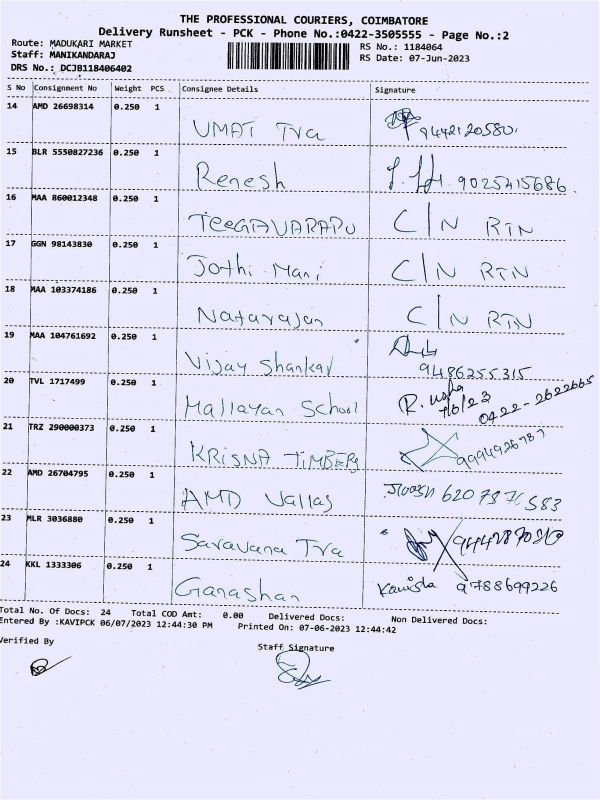 THE PROFESSIONAL COURIERS, COIMBATORE
Delivery Runsheet - PCK - Phone No.:0422-3505555 - Page No.:2
Route: MADUKARI MARKET
RS No.: 1184064
Staff: MANIKANDARAJ
RS Date: 07-Jun-2023
DRS No.: DCJB118406402
S No Consignment No Weight PCS Consignee Details Signature
14 AMD 26698314 0.250 1
UMAT Tra 9442120580
15 BLR 5550827236 0.250 1
Renesh 9025415686.
16 MAA 860012348 0.250 1
TEEGAVARAPU C/N RTN
17 GGN 98143830 0.250 1
Jothi Mani C/N RTN
18 MAA 103374186 0.250 1
Natarajan C/N RTN
19 MAA 104761692 0.250 1
Vijay Shankar 9486255315
20 TVL 1717499 0.250 1
Mallayan School R. Usha 7/6/23 0422-2622665
21 TRZ 290000373 0.250 1
KRISNA TIMBERS 9994926787
22 AMD 26704795 0.250 1
AMD Vallas 6207876583
23 MLR 3036880 0.250 1
Saravana Tra
24 KKL 1333306 0.250 1
Ganashan Kavisha 9788699226
Total No. Of Docs: 24 Total COD Amt: 0.00 Delivered Docs: Non Delivered Docs:
Entered By :KAVIPCK 06/07/2023 12:44:30 PM Printed On: 07-06-2023 12:44:42
Verified By
Staff Signature